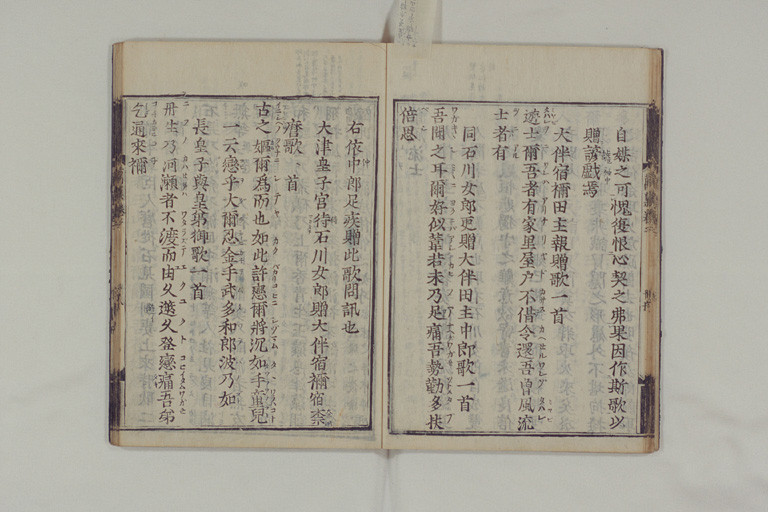 自媒之可愧復恨心契之弗果因作斯歌以
贈諺戯焉
大伴宿禰田主報贈歌一首
遊士爾吾者有家里屋戸不借令還吾曽風流
士者有
同石川女郎更贈大伴田主中郎歌一首
吾聞之耳爾好似葦若未乃足痛吾勢勤多扶
倍思
右依中郎足疾贈此歌問訊也
大津皇子宮侍石川女郎贈大伴宿禰宿奈
麿歌一首
古之嫗爾為而也如此許戀爾將沉如手童兒
一云戀乎大爾忍金手武多和郎波乃如
長皇子與皇弟御歌一首
丹生乃河瀬者不渡而由久遊久登戀痛吾弟
乞通來禰